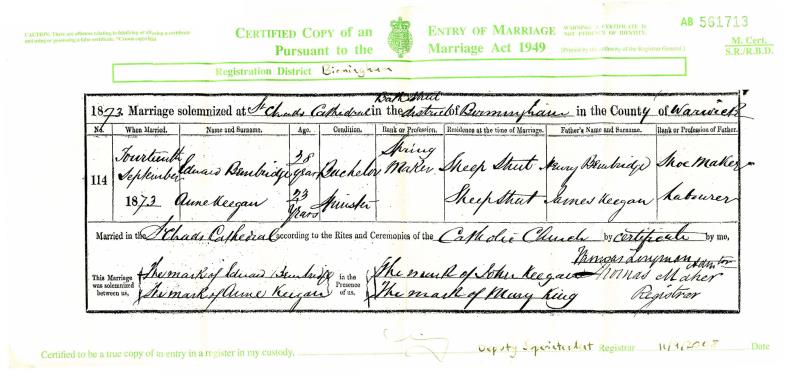 CAUTION: There are offences relating to falsifying or altering a certificate
and using or possessing a false certificate. *Crown copyright
CERTIFIED COPY of an ENTRY OF MARRIAGE
Pursuant to the Marriage Act 1949
WARNING: A CERTIFICATE IS
NOT EVIDENCE OF IDENTITY.
AB 561713
M. Cert.
S.R./R.B.D.
Registration District Birmingham
1873. Marriage solemnized at St Chads Cathedral in the Bath Street district of Birmingham in the County of Warwick
No. When Married. Name and Surname. Age. Condition. Rank or Profession. Residence at the time of Marriage. Father's Name and Surname. Rank or Profession of Father.
114 Fourteenth September 1873
Edward Bembridge 28 years Bachelor Spring Maker Sheep Street Bembridge Shoe Maker
Anne Keegan 23 years Spinster Sheep Street James Keegan Labourer
Married in the St Chads Cathedral according to the Rites and Ceremonies of the Catholic Church by certificate by me,
This Marriage was solemnized between us,
The mark of Edward Bembridge
The mark of Anne Keegan
in the Presence of us,
The mark of John Keegan
The mark of Mary King
Thomas Longman
Thomas Maher
Registrar
Certified to be a true copy of an entry in a register in my custody.
Deputy Superintendent Registrar
Date